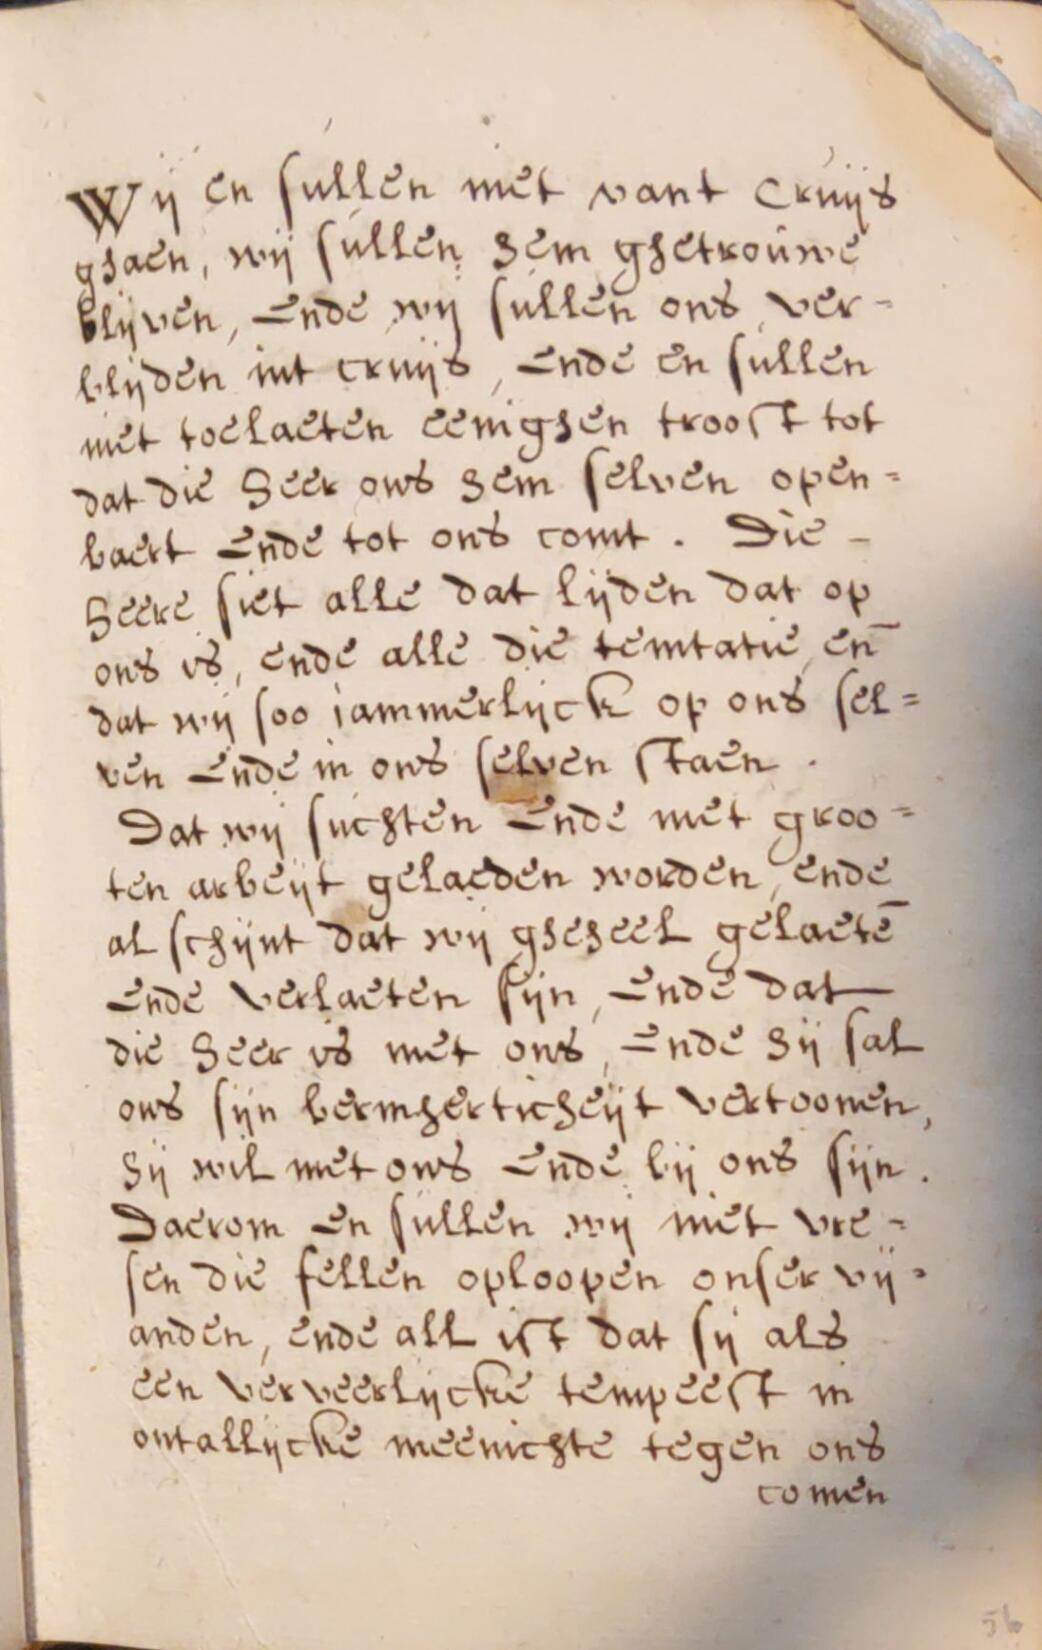 Wij en sullen niet vant Cruijs
ghaen, wij sullen hem ghetrouwe
blijven, Ende wij sullen ons ver=
blijden int cruijs, Ende en sullen
niet toelaeten eenighen troost tot
dat die Heer ons hem selven open=
baert Ende tot ons comt. Die -
Heere siet alle dat lijden dat op
ons is, ende alle die temtatie, en̄
dat wij soo iammerlijck op ons sel=
ven Ende in ons selven staen.
Dat wij suchten Ende met groo=
ten arbeijt gelaeden worden, ende
al schijnt dat wij gheheel gelaetē
Ende verlaeten sijn, Ende dat
die Heer is met ons, Ende hij sal
ons sijn bermherticheijt vertoonen,
hij wil met ons Ende bij ons sijn.
Daerom En sullen wij niet vre=
sen die fellen oploopen onser vij=
anden, ende all ist dat sij als
een verveerlijcke tempeest in
ontallijcke meenichte tegen ons
comen
56